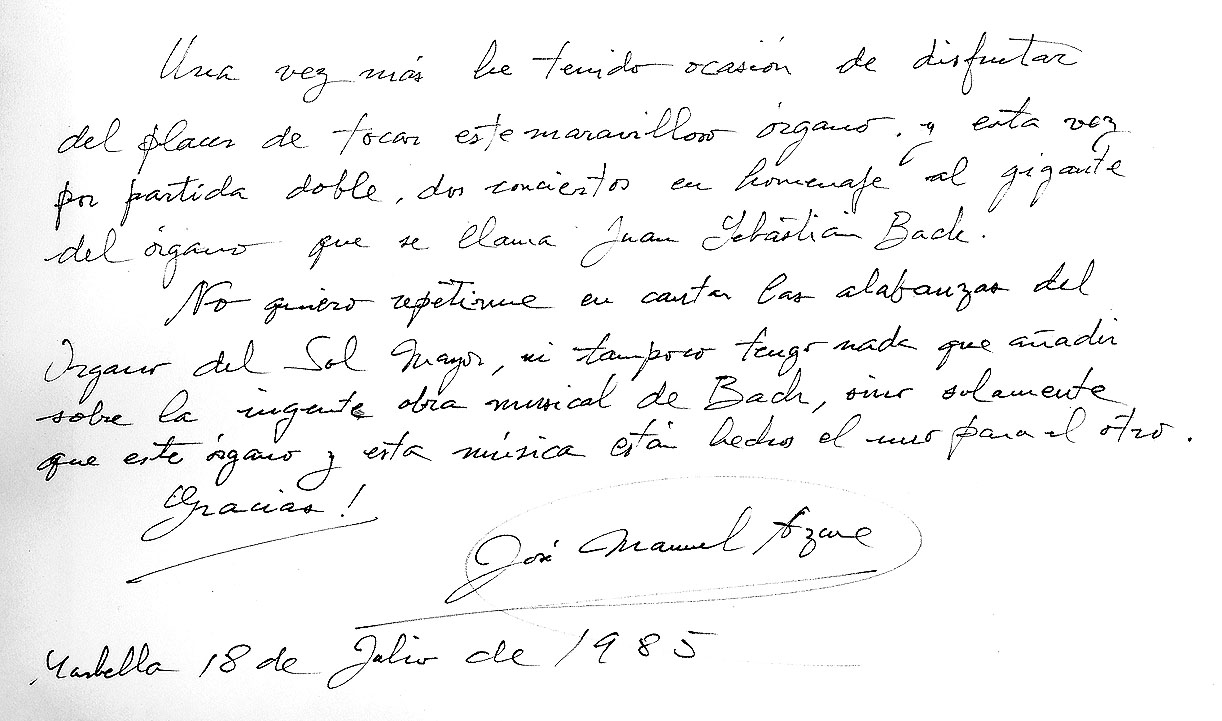 Una vez más he tenido ocasión de disfrutar
del placer de tocar este maravilloso órgano, y esta vez
por partida doble, dos conciertos en homenaje al gigante
del órgano que se llama Juan Sebastián Bach.
No quiero repetirme en cantar las alabanzas del
Organo del Sol Mayor, ni tampoco tengo nada que añadir
sobre la ingente obra musical de Bach, sino solamente
que este órgano y esta música están hechos el uno para el otro.
Gracias!
José Manuel Azcue
Marbella 18 de Julio de 1985